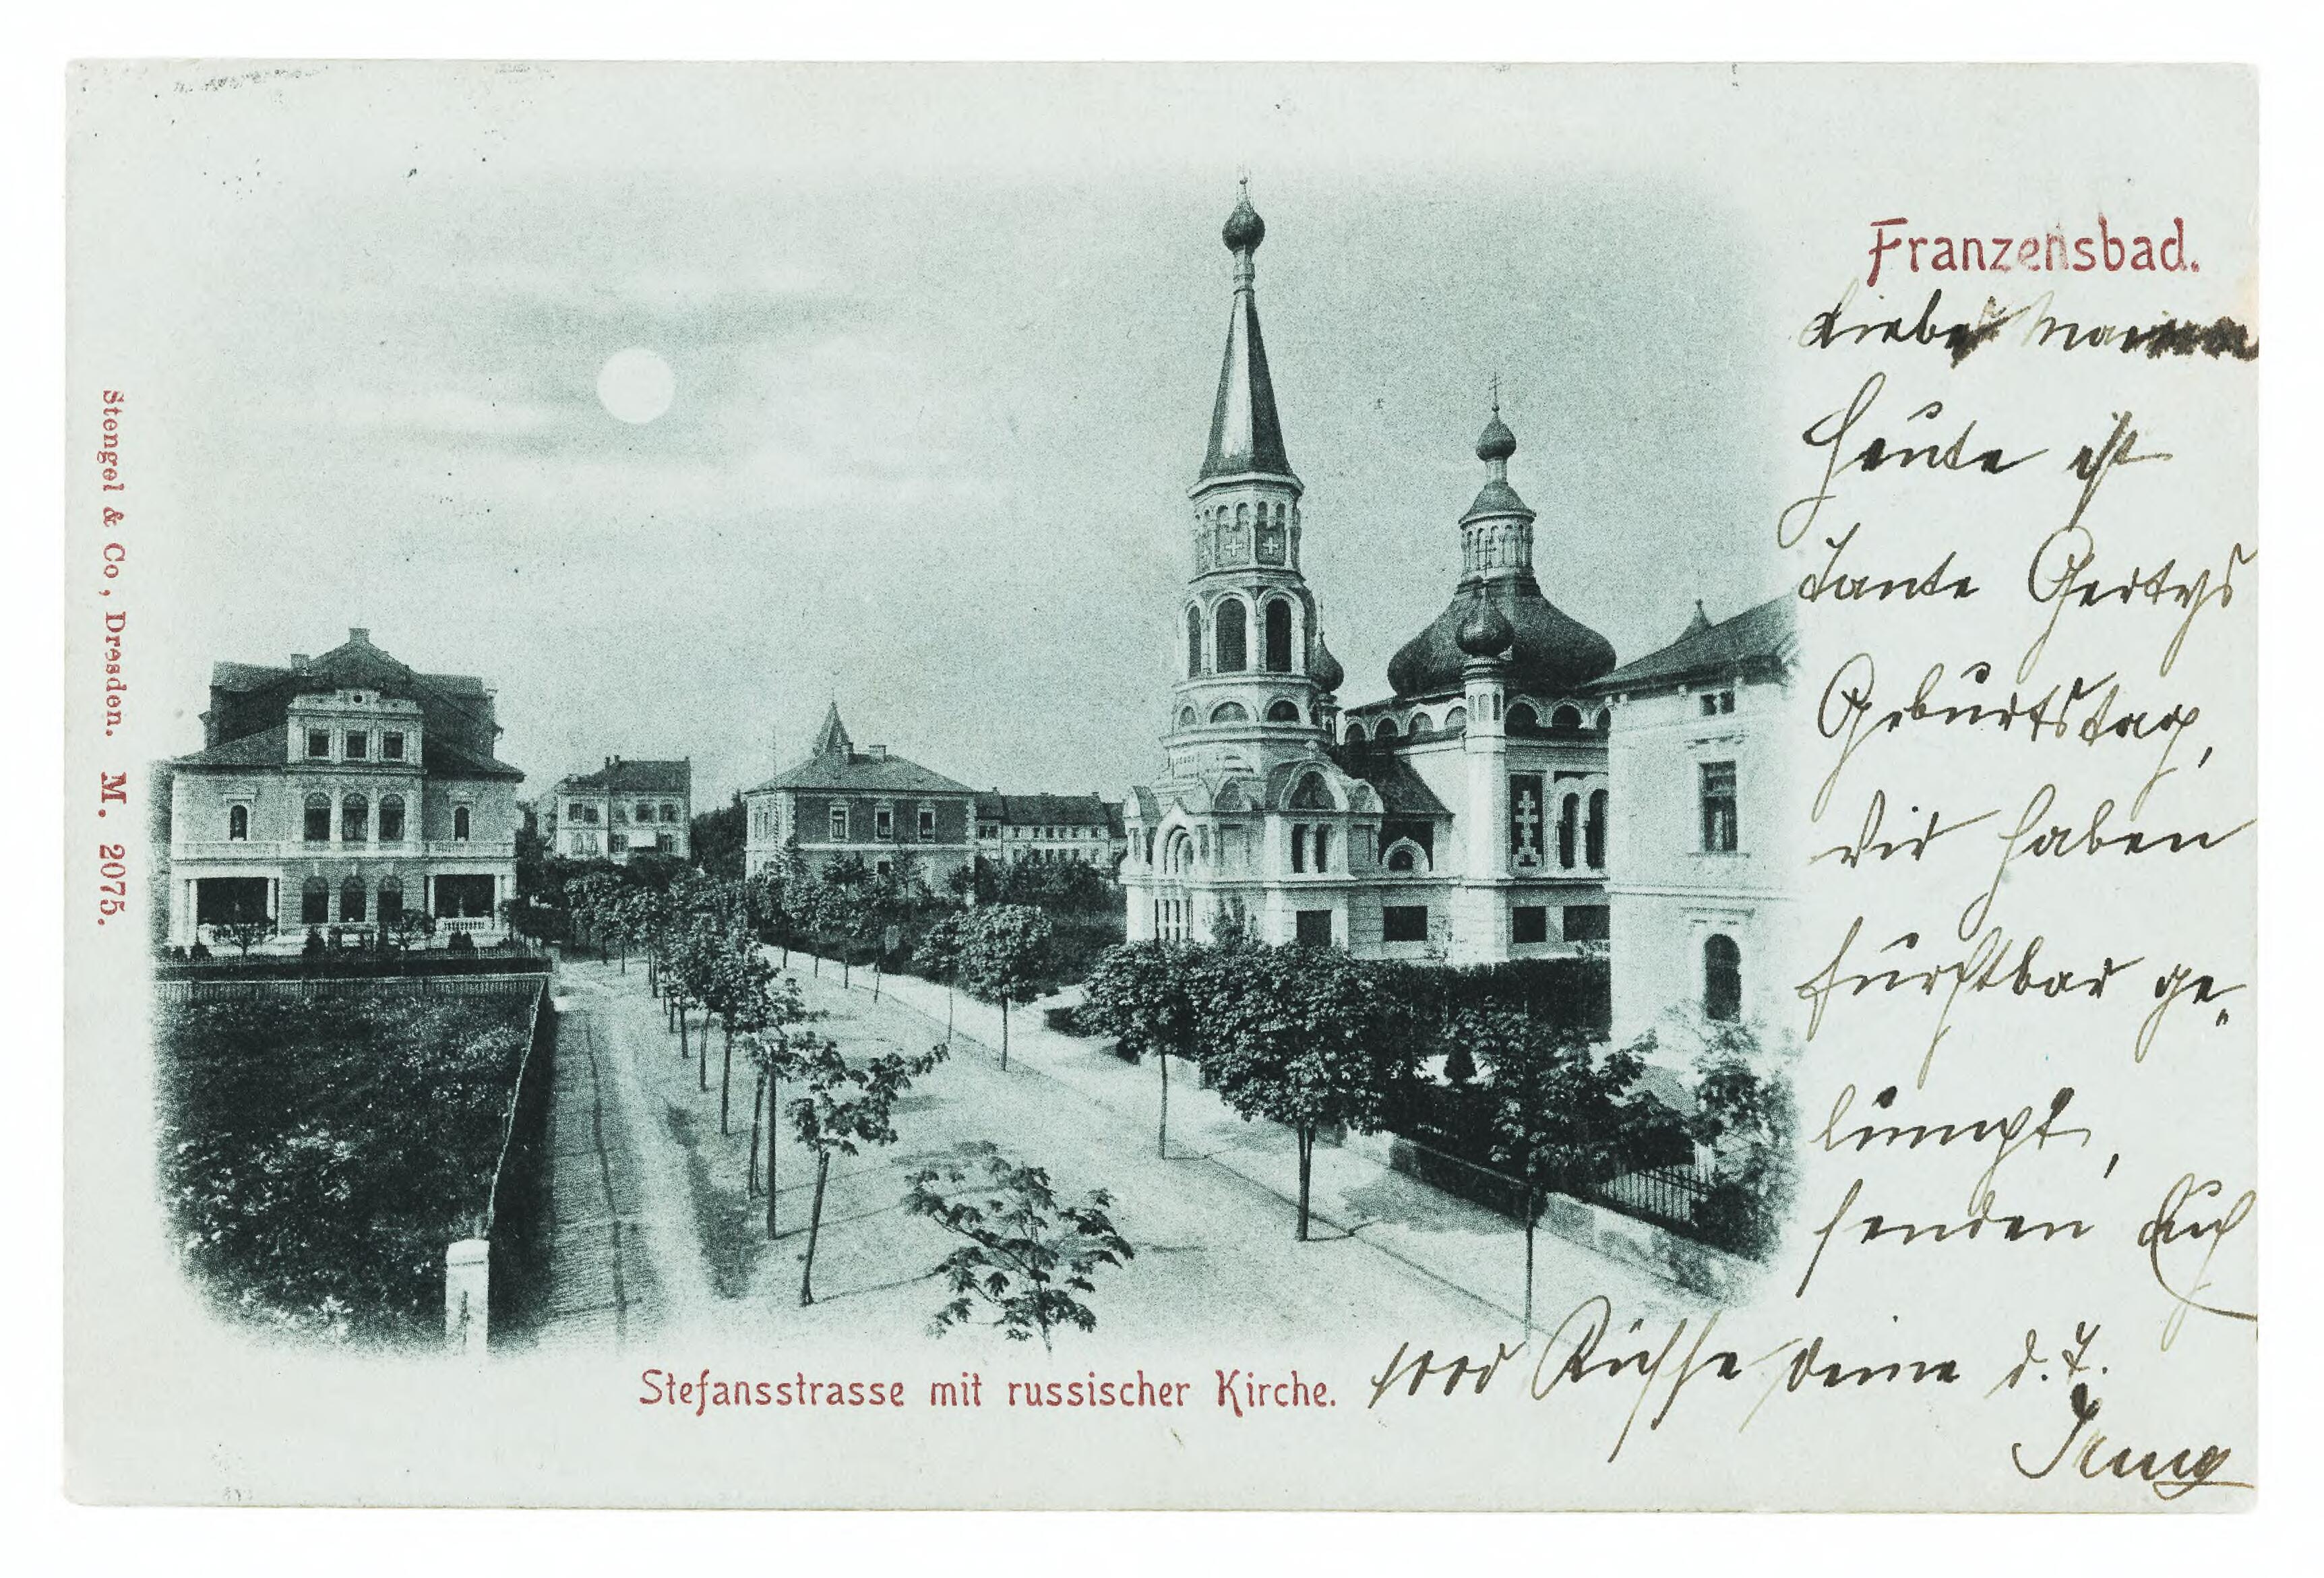 Franzensbad.
Liebe Mama
Heute ist
Tante Gertys
Geburtstag,
Wir haben
furchtbar ge„
lumpt,
senden Euch
1000 Küsse Deine d. T.
Stefansstrasse mit russischer Kirche.
Stengel & Co, Dresden. M. 2075.